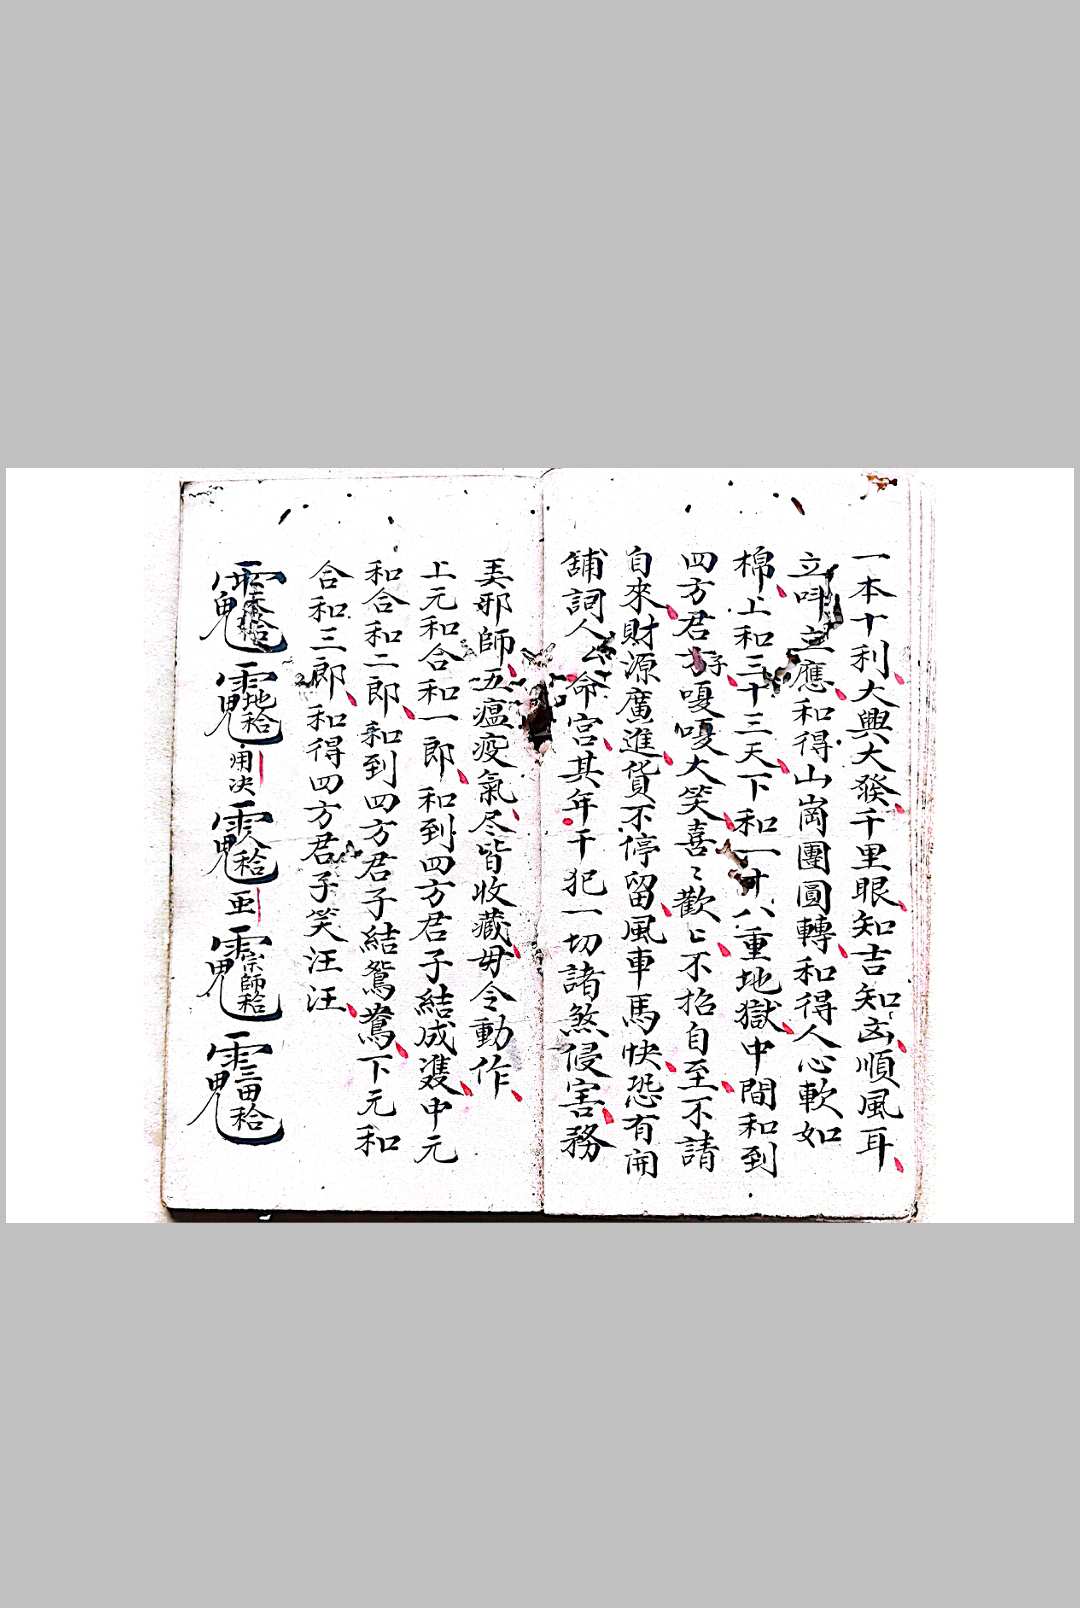 一本十利大興大發千里眼知吉知玄順風耳
立吽立應和得山崗團圓轉和得人心軟如
棉上和三十三天下和一十八重地獄中間和到
四方君子嗄嗄大笑喜〻歡〻不招自至不請
自來財源廣進貨不停留風車馬快恐有開
舖詞人公命宮其年干犯一切諸煞侵害務
邪師五瘟疫氣尽皆收藏毋令動作
上元和合和一郎和到四方君子結成雙中元
和合和二郎和到四方君子結鴛鴦下元和
合和三郎和得四方君子笑汪汪